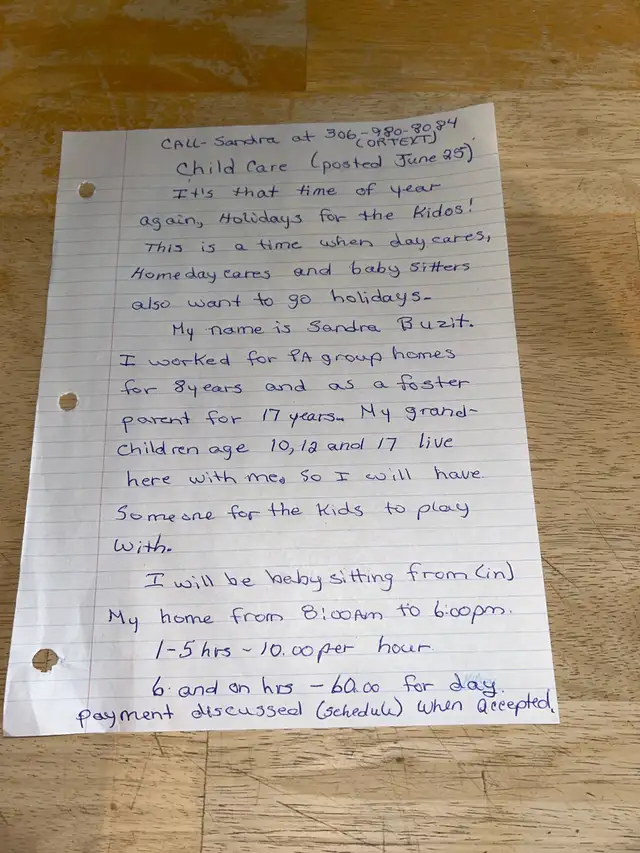 CALL- Sandra at 306-980-8084
(OR TEXT)
Child Care (posted June 25)
It's that time of year
again, Holidays for the Kidos!
This is a time when day cares,
Home day cares and baby sitters
also want to go holidays-
My name is Sandra Buzit.
I worked for PA group homes
for 8 years and as a foster
parent for 17 years. My grand-
children age 10, 12 and 17 live
here with me. So I will have
Someone for the Kids to play
with.
I will be baby sitting from (in)
My home from 8:00 AM to 6:00 pm.
1-5 hrs - 10.00 per hour
6 and on hrs - 60.00 for day.
payment discussed (schedule) when accepted.